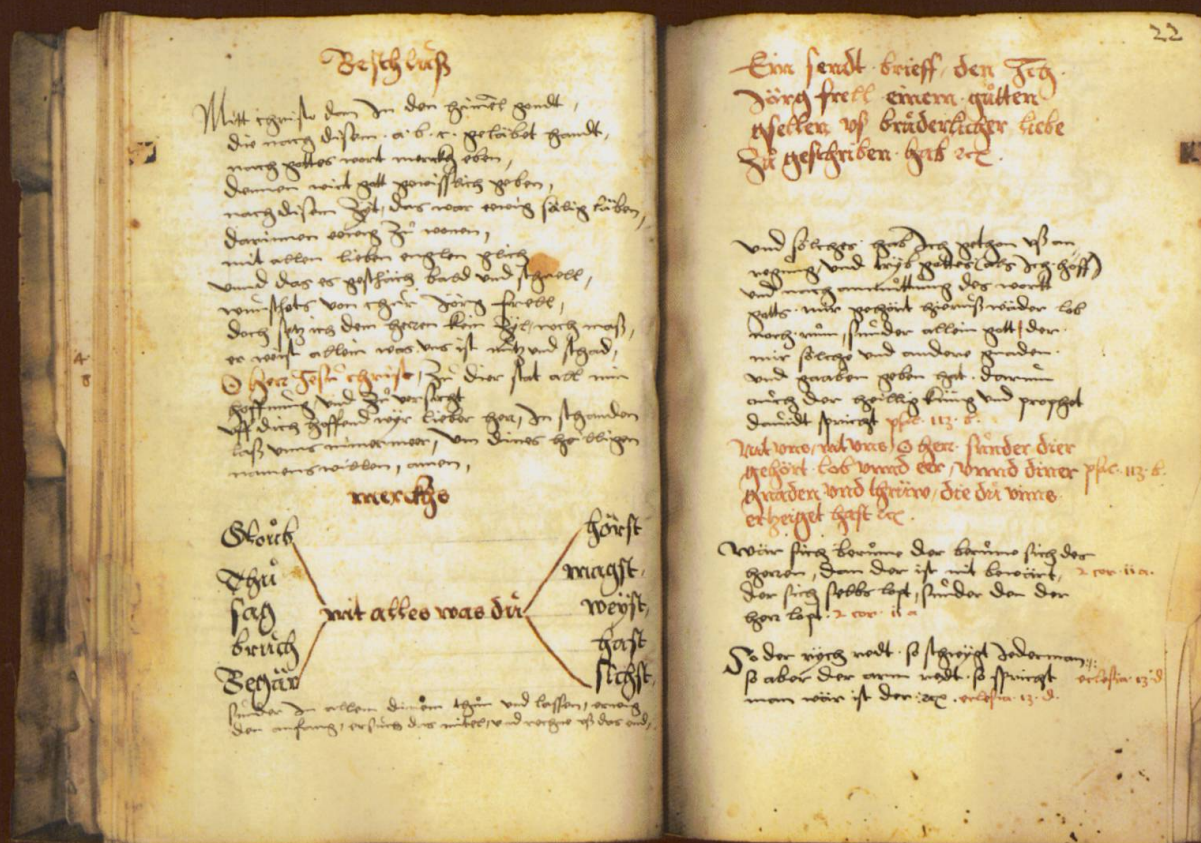 Beschluß
Mitt christo dem In den himel gondt,
die nach disem .a.b.c. geläbet handt,
nach gottes wort mercks eben,
Denen wirt gott gewisslich geben,
nach disem Zyt, das war ewig sälig läben,
darinnen ewig Zů wonen,
mit allen lieben englen glich
unnd das es geschäch bald und schnell,
wünschets von Chur Jörg Frell,
doch setz ich dem herren kein Zyl, noch maß,
er weist allein was uns ist nutz und schad,
O Herr Jesu christ, Zů dier stat all min
hoffnung und Zů versicht
uff dich hoffend wyr lieber herr, In schanden
laß unns nimermeer, um dines heilligen
namens willen, amen,
merckhs
Gloub
Thů
sag
bruch
Begär
nit alles was dů
hörst
magst,
weyst,
hast
sichst,
sunder In allem dinem thůn und lassen, ewig
den anfang, ersuch das mitel, und rechne uß das end,
22
Ein sendt brieff, den Ich
Jörg frell einem gůtten
gsellen uß brůderlicher liebe
Zů geschriben hab etc.
Und sölches hab Ich gethan uß an
regung und tryb gottes (als Ich hoff)
und nach anmůttung des wortt
gotts, mir gehört hieruß wäder lob
noch rům, sunder allein gott, der
mir sölche und andere gnaden
und gaaben geben hat. Darum
auch der heillig küng und prophet
dauidt spricht psal. 113. b.
Nit uns, nit uns, O herr sunder dier
gehört lob unnd eer, unnd diner psal. 113. b.
gnaden und thrüw, die du unns
erzeiget hast etc.
Wär sich berůme der berůme sich des
herren, dan der ist nit bewärt, 2 cor. 11 a.
der sich selbs lopt, sunder den der
herr lopt. 2 cor. 11 a
So der rych redt so schwygt Jederman
so aber der arm redt so spricht ecclesia. 13 d
man wär ist der etc. ecclesia. 13. d.